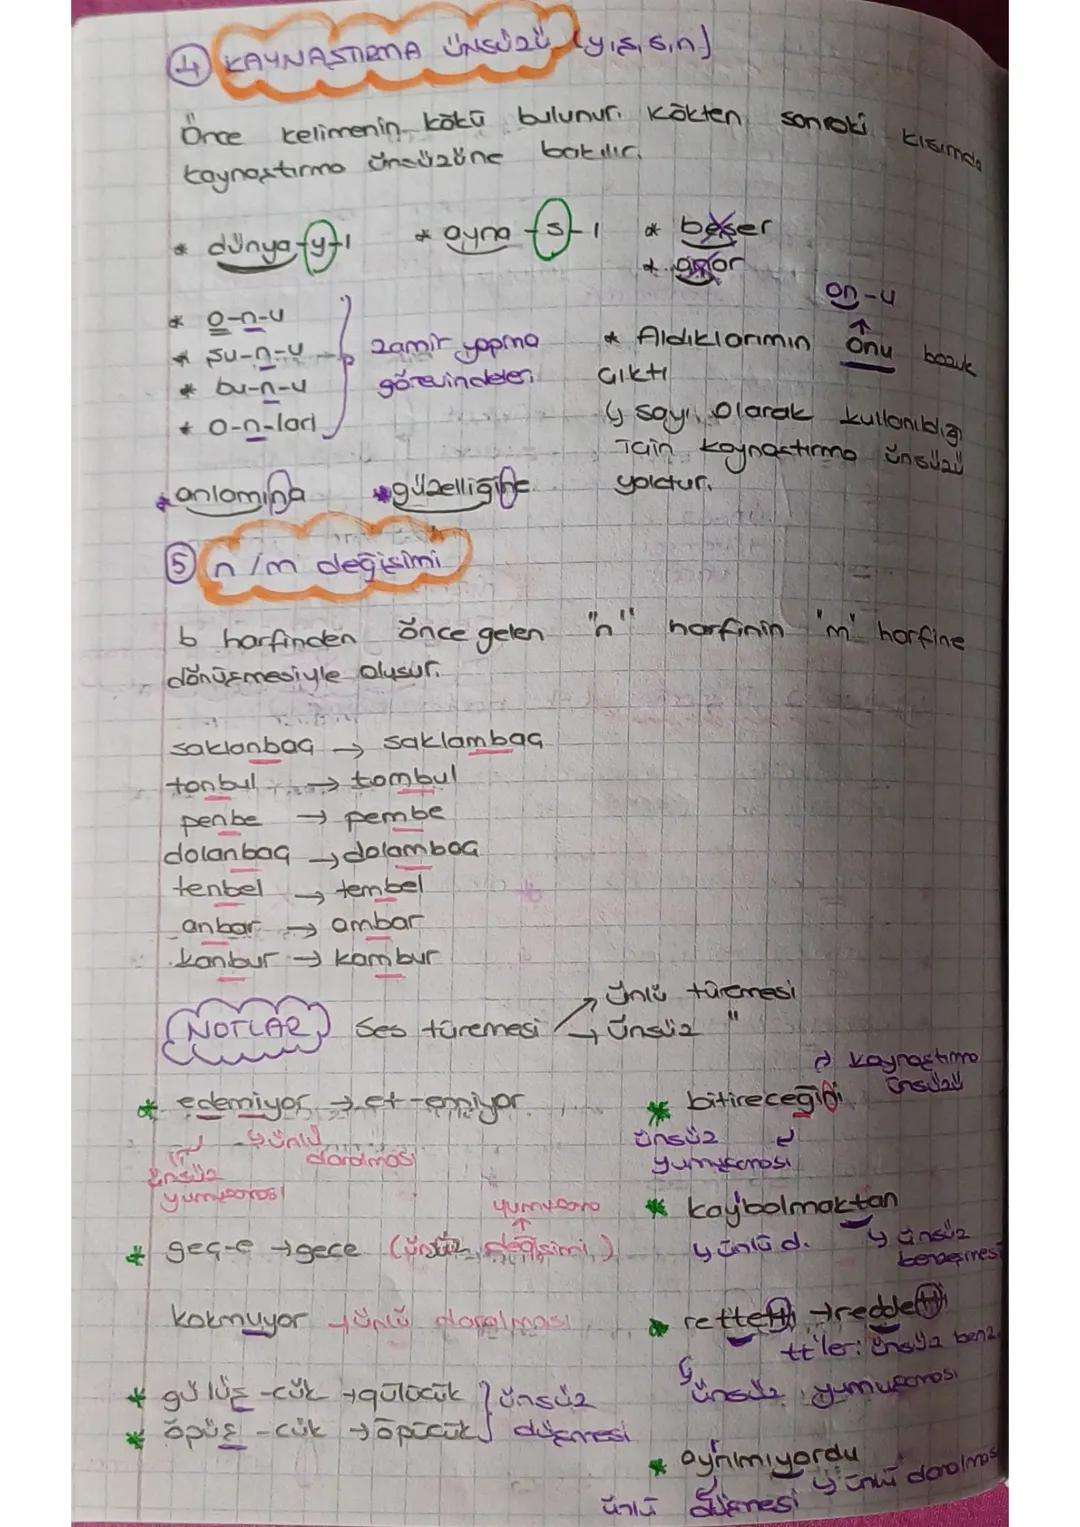 4 KAYNAŞTIRMA ÜNSÜZÜ (y,ş,s,n)
Önce kelimenin kökü bulunur. Kökten sonraki kısımda
kaynaştırma ünsüzüne bakılır.
* dünya-y-ı * ayna-s-ı * beşer
* o-n-u
* şu-n-u
* bu-n-u
* o-n-ları
zamir yapma
görevindeler.
on-u
* Aldıklarımın onu bozuk
çıktı
↳ sayı olarak kullanıldığı
için kaynaştırma ünsüzü
yoktur.
* anlamına * güzelliğine
5 n/m değişimi
b harfinden önce gelen "n" harfinin "m" harfine
dönüşmesiyle oluşur.
saklanbaç → saklambaç
tonbul → tombul
penbe → pembe
dolanbaç → dolambaç
tenbel → tembel
anbar → ambar
kanbur → kambur
NOTLAR Ses türemesi → ünlü türemesi
→ ünsüz "
* edemiyor → et-emiyor
↳ ünlü daralması
ünsüz
yumuşaması
kaynaştırma
ünsüzü
* bitireceğini
ünsüz
yumuşaması
yumuşama
* geç-e → gece (ünsüz değişimi)
* kaybolmaktan
↳ ünlü d. ↳ ünsüz
benzeşmesi
kokmuyor → ünlü daralması
* rettetti → reddetti
tt'ler: ünsüz benz.
ünsüz yumuşaması
* gülüş-cük → gülücük
* öpüş-cük → öpücük
ünsüz
düşmesi
* ayrılmıyordu
↳ ünlü daralması
ünlü düşmesi